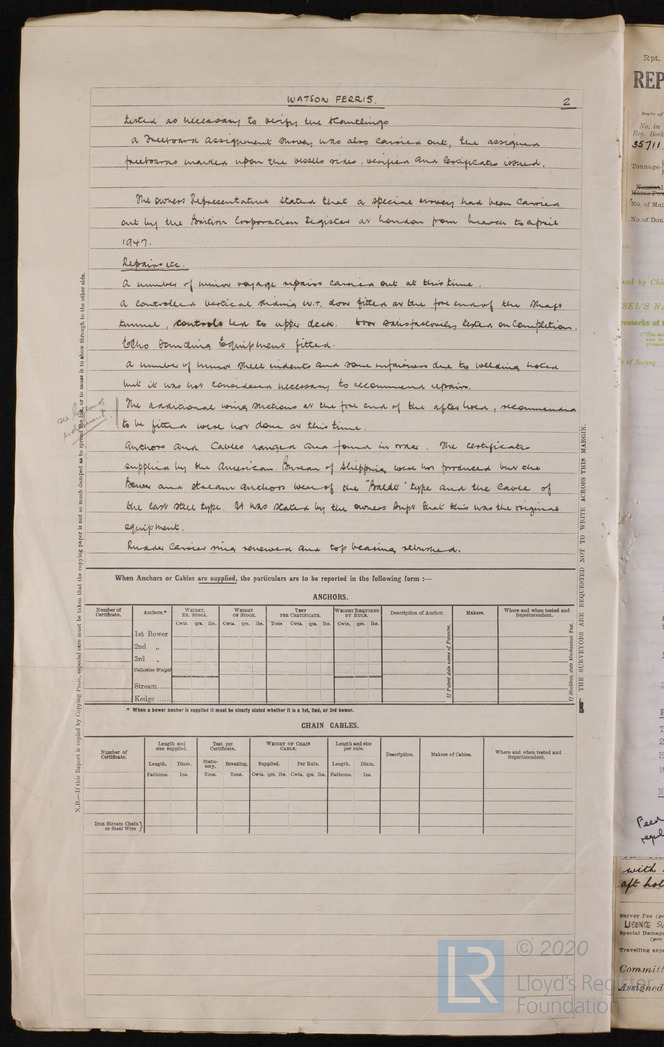 WATSON FERRIS.
2
tested as necessary to verify the scantlings
a Freeboard Assignment Survey was also carried out, the assigned
freeboards marked upon the vessels sides, verified and Certificates issued.
The owners Representative stated that a special survey had been carried
out by the British Corporation Register at London from March to April
1947.
Repairs etc.
A number of minor voyage repairs carried out at this time.
A controlled vertical sliding W.T. door fitted at the fore end of the Shaft
tunnel, controls led to upper deck. Door satisfactorily tested on Completion.
Echo Sounding Equipment fitted.
A number of minor shell indents and some unfairness due to welding noted
but it was not considered necessary to recommend repairs.
The additional wing suctions at the fore end of the after hold, recommended
to be fitted were not done at this time.
Anchors and Cables ranged and found in order. The certificates
supplied by the American Bureau of Shipping were not produced but the
Bower and stream anchors were of the "Baldt" type and the Cable of
the cast steel type. It was stated by the owners Supt that this was the original
equipment.
Rudder Carrier ring renewed and top bearing rebushed.
see
When Anchors or Cables are supplied, the particulars are to be reported in the following form :—
ANCHORS.
Number of Certificate. Anchors.* WEIGHT, EX. STOCK. WEIGHT OF STOCK. TEST PER CERTIFICATE. WEIGHT REQUIRED BY RULE. Description of Anchor. Makers. Where and when tested and Superintendent.
Cwts. qrs. lbs. Cwts. qrs. lbs. Tons Cwts. qrs. lbs. Cwts. qrs. lbs.
1st Bower
2nd „
3rd „
Collective Weight
Stream......
Kedge ......
If Patent state name of Patentee.
If Stockless, state Mechanical Test.
* When a bower anchor is supplied it must be clearly stated whether it is a 1st, 2nd, or 3rd bower.
CHAIN CABLES.
Number of Certificate. Length and size supplied. Test per Certificate. WEIGHT OF CHAIN CABLE. Length and size per rule. Description. Makers of Cables. Where and when tested and Superintendent.
Length. Diam. Statutory. Breaking. Supplied. Per Rule. Length. Diam.
Fathoms. Ins. Tons. Tons. Cwts. qrs. lbs. Cwts. qrs. lbs. Fathoms. Ins.
Iron Stream Chain or Steel Wire
N.B.—If this Report is copied by Copying Press, especial care must be taken that the copying paper is not so much damped as to spread the ink, or to cause it to show through to the other side.
THE SURVEYORS ARE REQUESTED NOT TO WRITE ACROSS THIS MARGIN.
Rpt.
REP
No. in
Reg. Book
35711
Tonnage
No. of
No of
with
aft hol
Survey Fee
Special Damage
(per
Travelling
Committ
Assigned
© 2020
LR
Lloyd's Register
Foundation